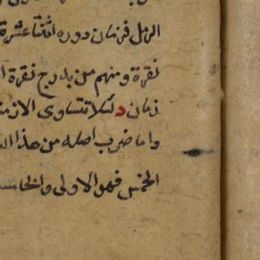 الرمل فزمان دوره اثنتا عشرة
نقرة ومنهم من يدرج نقرة
زمان د لئلا تتساوى الازمنة
واما ضرب اصله من هذا
الخمس فهو الاولى والخامسة